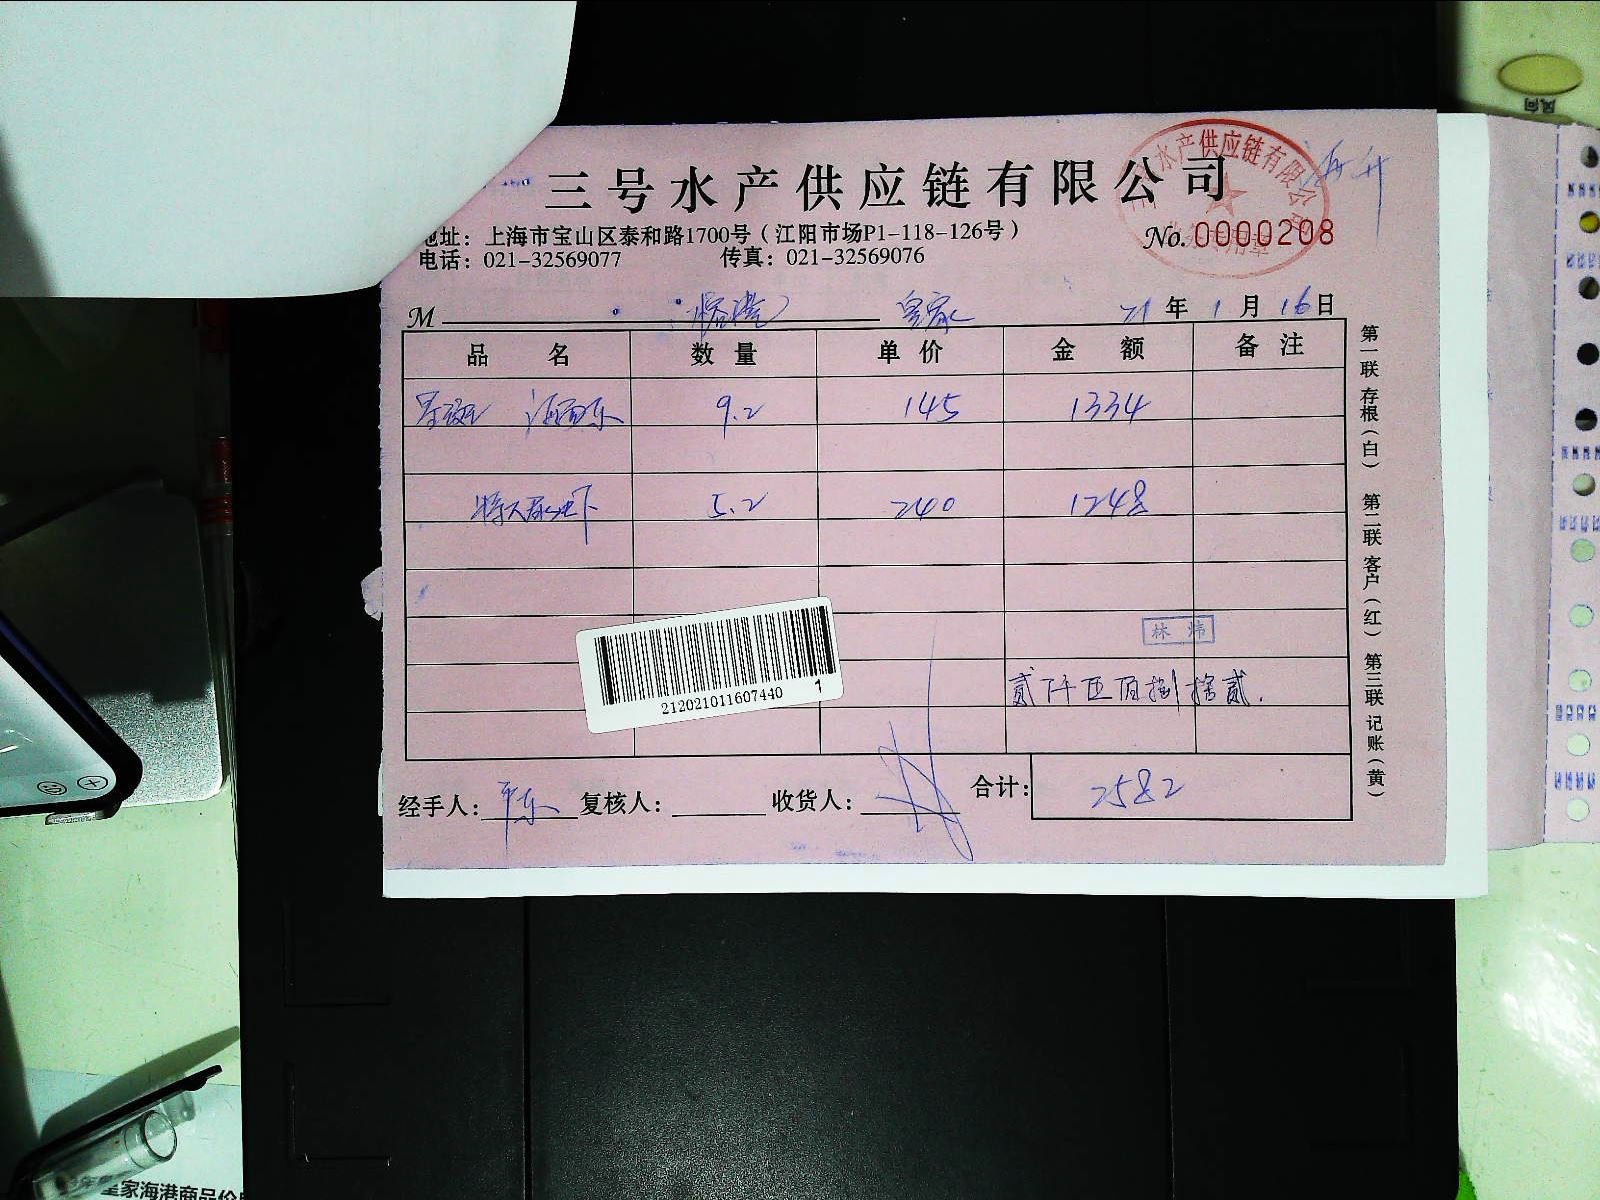 风向
三号水产供应链有限公司
水产供应链有限公司
专用章
海升
地址：上海市宝山区泰和路1700号（江阳市场P1-118-126号）
No. 0000208
电话：021-32569077 传真：021-32569076
M 皇家 21年1月16日
品名 数量 单价 金额 备注
9.2 145 1334
5.2 240 1248
林炜
贰仟伍佰捌拾贰.
212021011607440 1
经手人： 复核人： 收货人： 合计： 2582
第一联 存根（白） 第二联 客户（红） 第三联 记账（黄）
皇家海港商品价